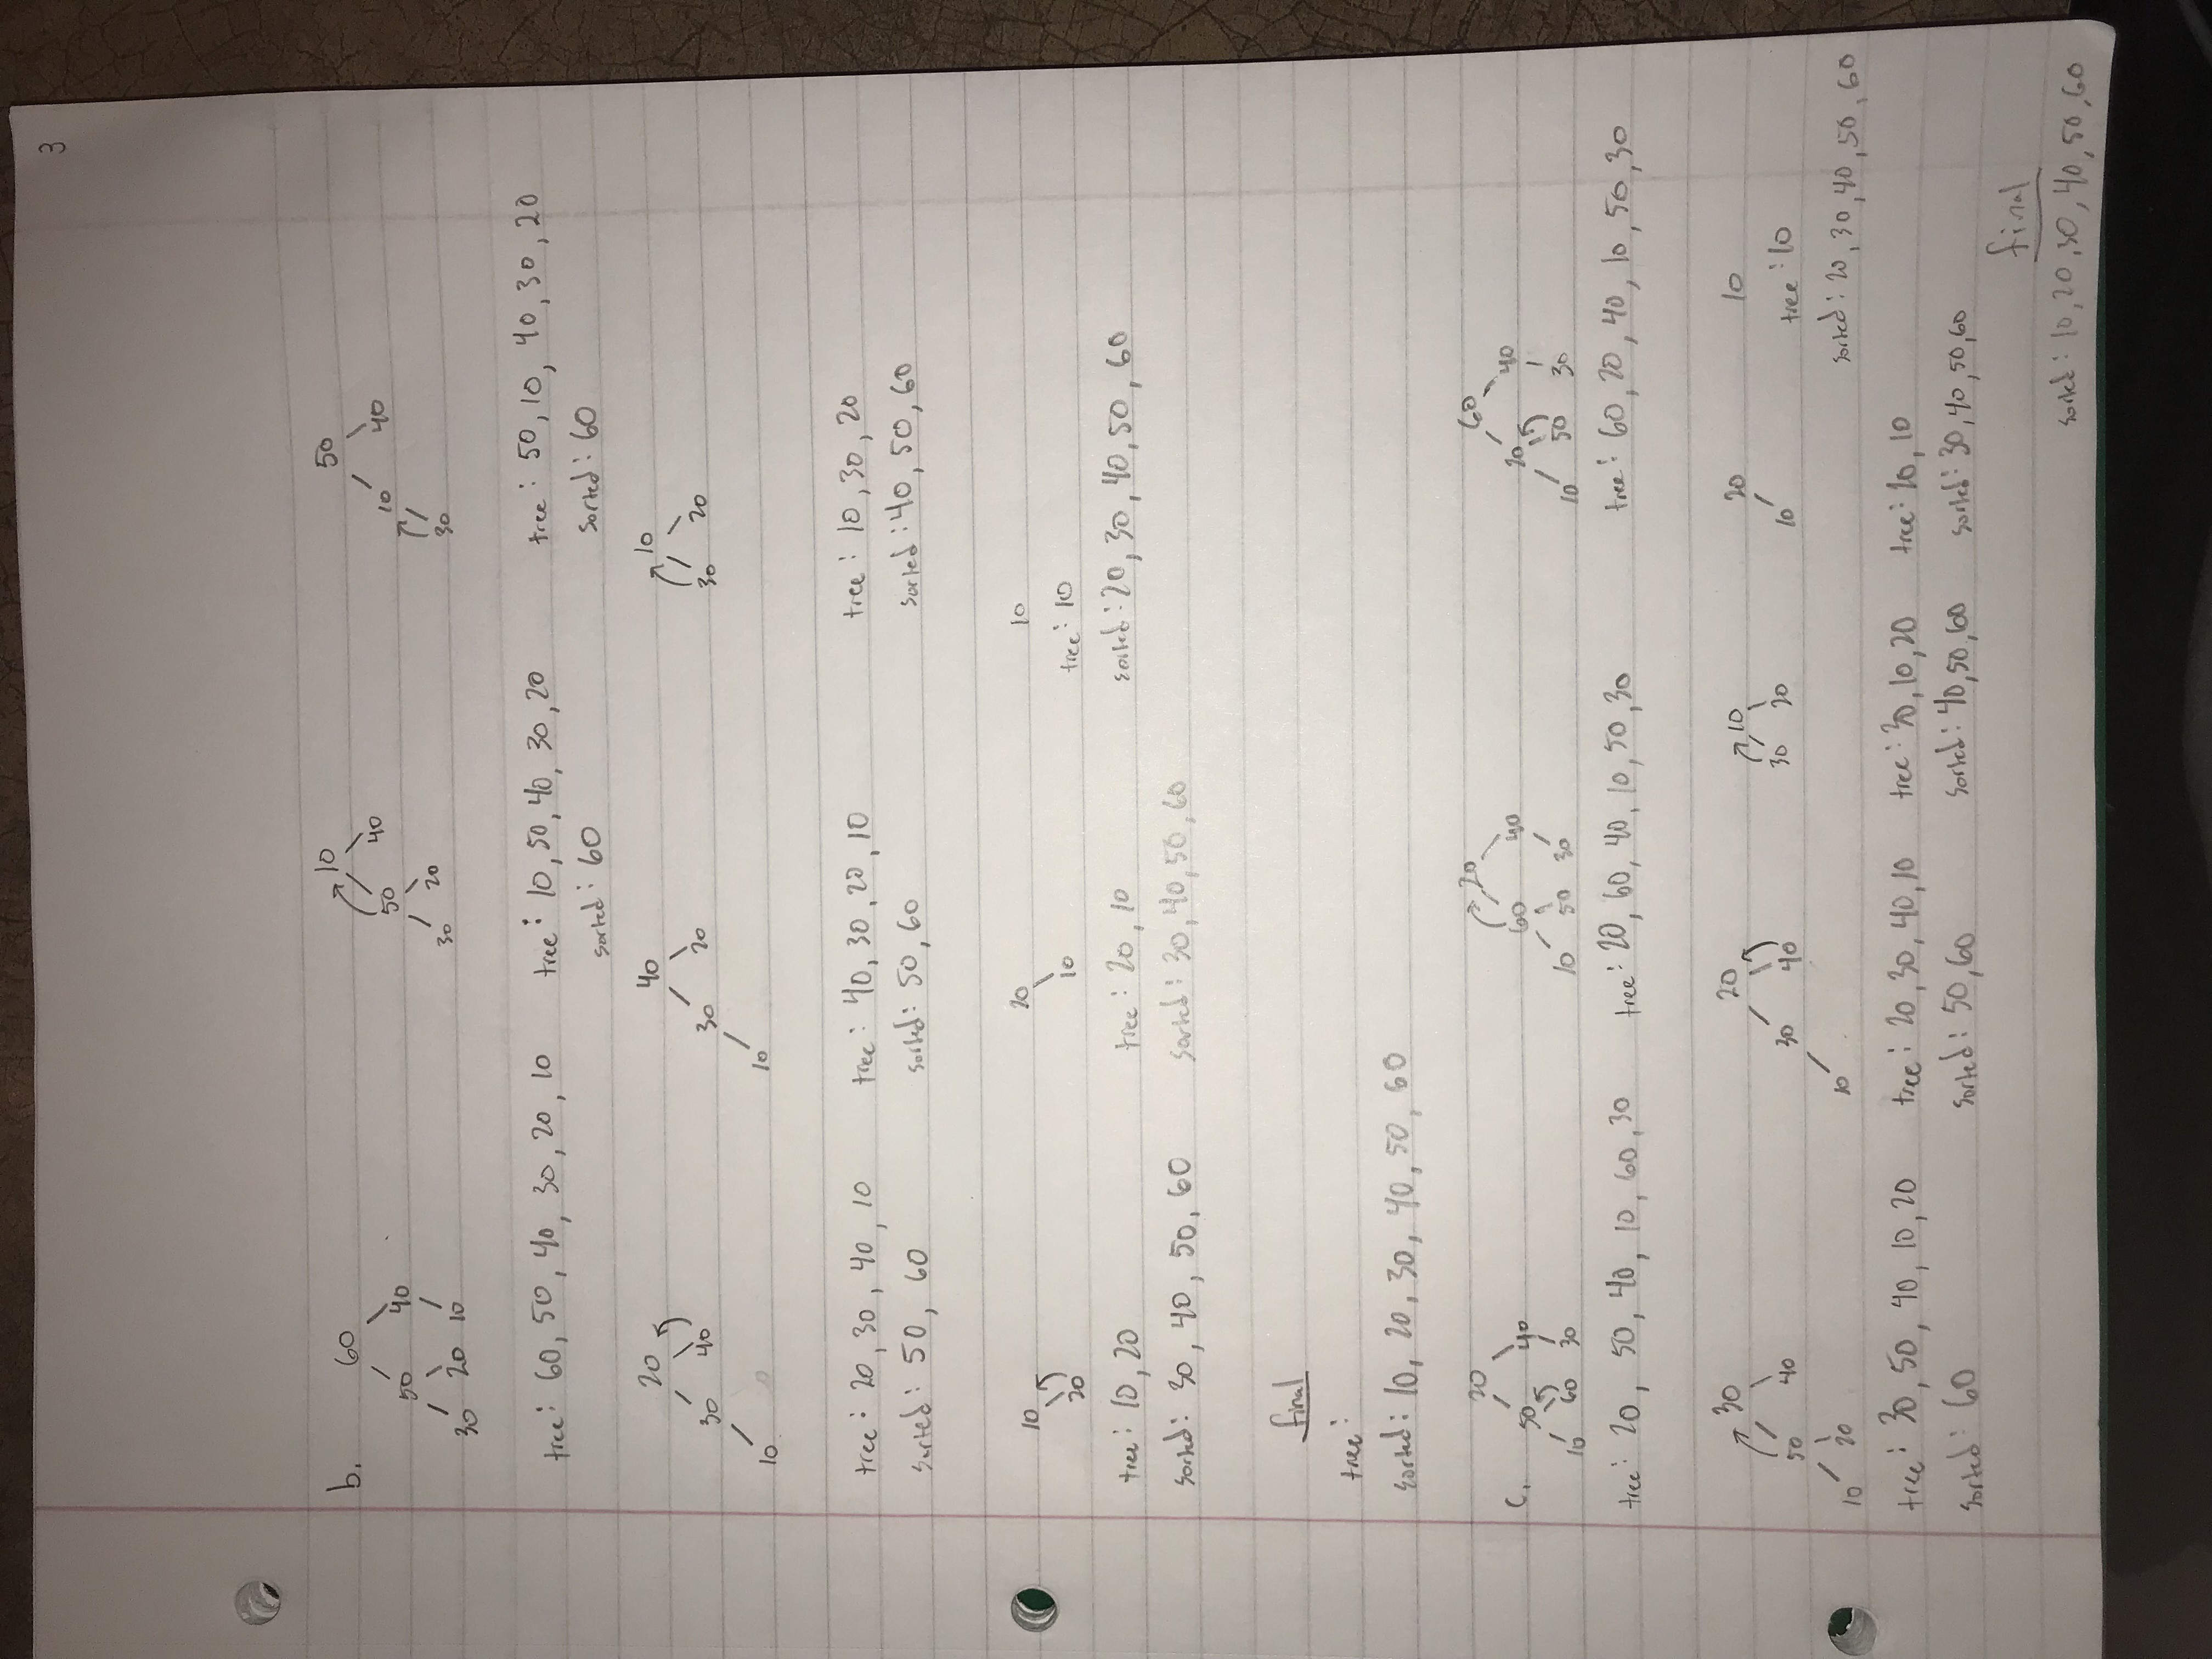 3
b.
60
50 40
30 20 10
10
50 40
30 20
50
10 40
30
tree: 60, 50, 40, 30, 20, 10
tree: 10, 50, 40, 30, 20
sorted: 60
tree: 50, 10, 40, 30, 20
sorted: 60
20
30 40
10
40
30 20
10
10
30 20
tree: 20, 30, 40, 10
sorted: 50, 60
tree: 40, 30, 20, 10
sorted: 50, 60
tree: 10, 30, 20
sorted: 40, 50, 60
10
20
tree: 10, 20
sorted: 30, 40, 50, 60
20
10
tree: 20, 10
sorted: 30, 40, 50, 60
10
tree: 10
sorted: 20, 30, 40, 50, 60
final
tree:
sorted: 10, 20, 30, 40, 50, 60
c.
20
50 40
10 60 30
20
60 40
10 50 30
60
20 40
10 50 30
tree: 20, 50, 40, 10, 60, 30
tree: 20, 60, 40, 10, 50, 30
tree: 60, 20, 40, 10, 50, 30
30
50 40
10 20
tree: 30, 50, 40, 10, 20
sorted: 60
20
30 40
10
tree: 20, 30, 40, 10
sorted: 50, 60
10
30 20
tree: 30, 10, 20
sorted: 40, 50, 60
20
10
tree: 20, 10
sorted: 30, 40, 50, 60
10
tree: 10
sorted: 20, 30, 40, 50, 60
final
sorted: 10, 20, 30, 40, 50, 60